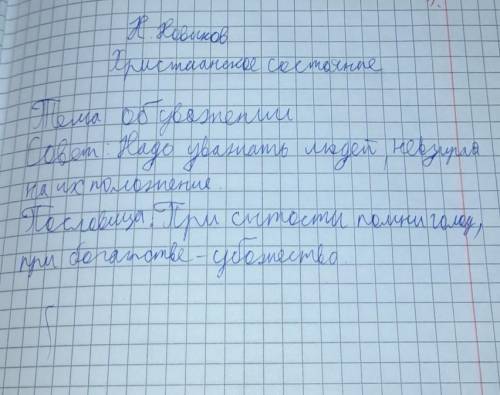 Н. Новиков
Христианское состояние
Тема об уважении
Совет: Надо уважать людей, невзирая
на их положение.
Пословица: При сытости помни голод,
при богатстве - убожество.